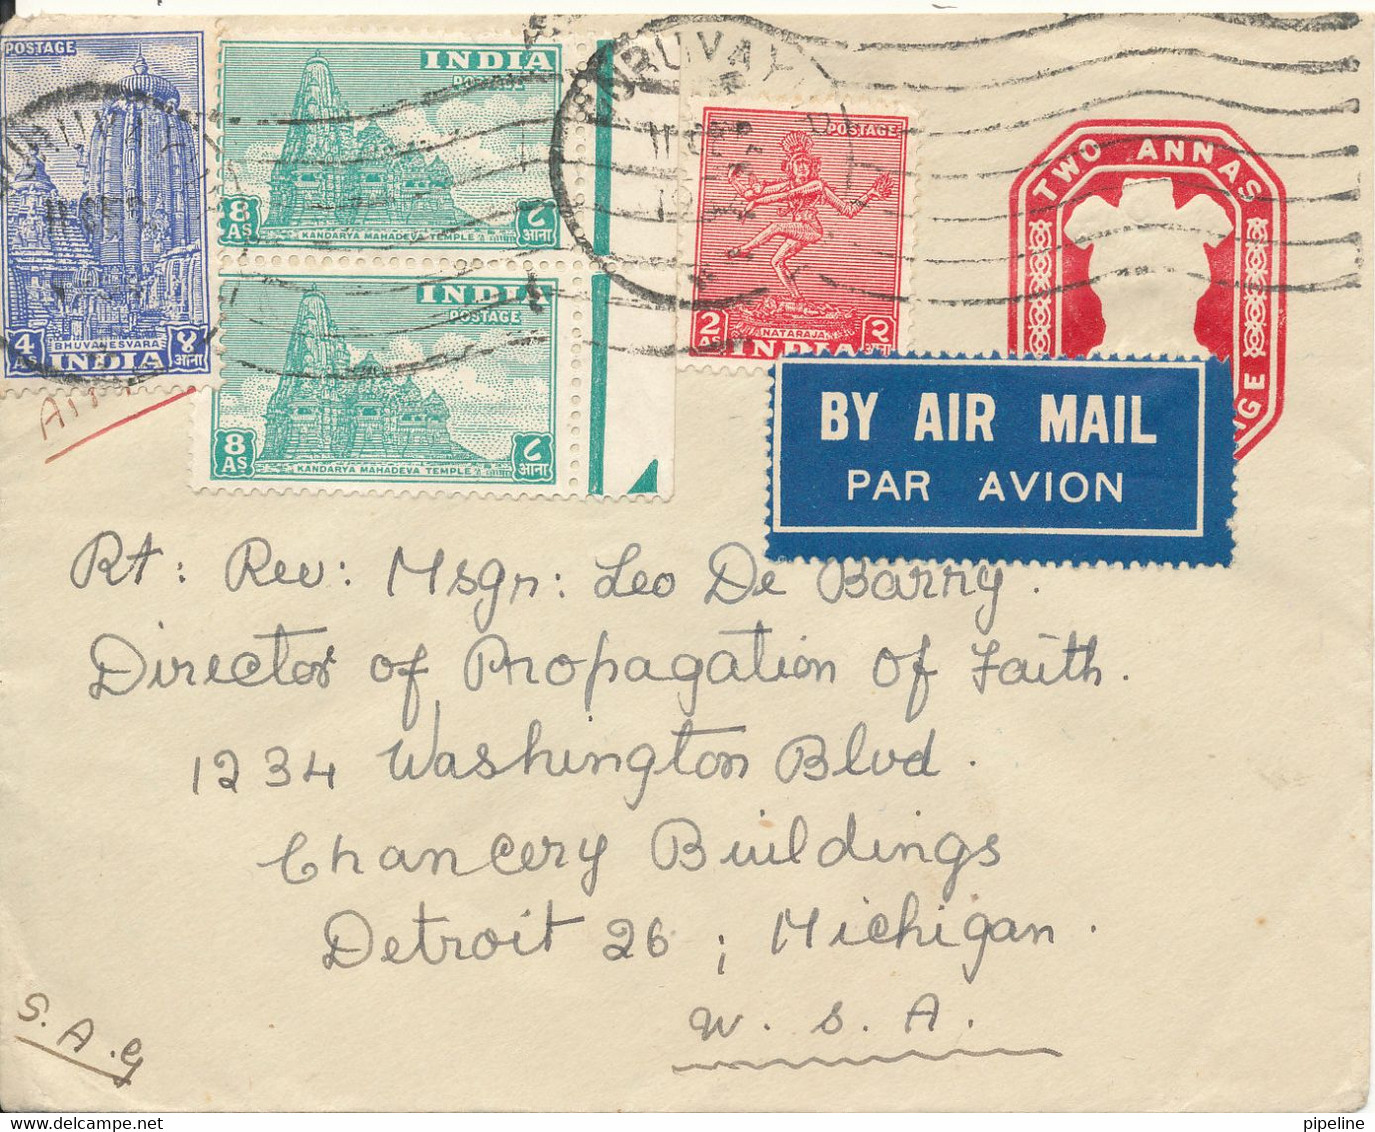 POSTAGE
4 AS ४ आना
BHUVANESVARA
INDIA
INDIA
POSTAGE
8 AS ८ आना
KANDARYA MAHADEVA TEMPLE
INDIA
POSTAGE
8 AS ८ आना
KANDARYA MAHADEVA TEMPLE
POSTAGE
NATARAJA
2 AS INDIA २ आना
TWO ANNAS
BY AIR MAIL
PAR AVION
Rt: Rev: Msgr: Leo De Barry.
Director of Propagation of Faith.
1234 Washington Blvd.
Chancery Buildings
Detroit 26; Michigan.
U. S. A.
S. A. G
pipeline